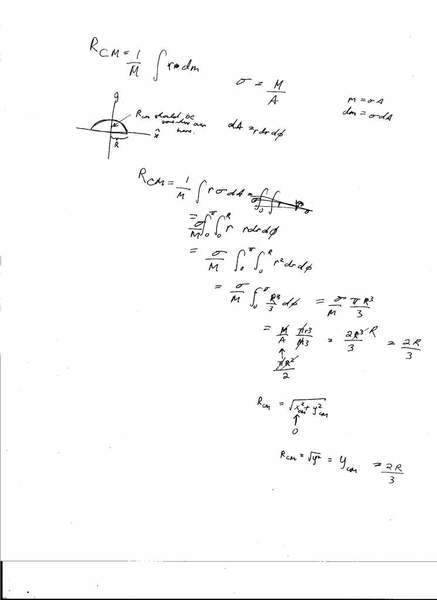 R_CM = 1/M ∫ r dm
σ = M/A
M = σA
dm = σdA
y
R_cm should be somewhere over here.
x̂
R
dA = r dr dϕ
R_CM = 1/M ∫ r σ dA =
= σ/M ∫_0^π ∫_0^R r r dr dϕ
= σ/M ∫_0^π ∫_0^R r² dr dϕ
= σ/M ∫_0^π R³/3 dϕ = σ/M πR³/3
= M/A πR³/M3 = 2R³/3 R = 2R/3
↑
πR²/2
R_cm = √(x²_cm + y²_cm)
↑
0
R_CM = √y² = y_CM = 2R/3